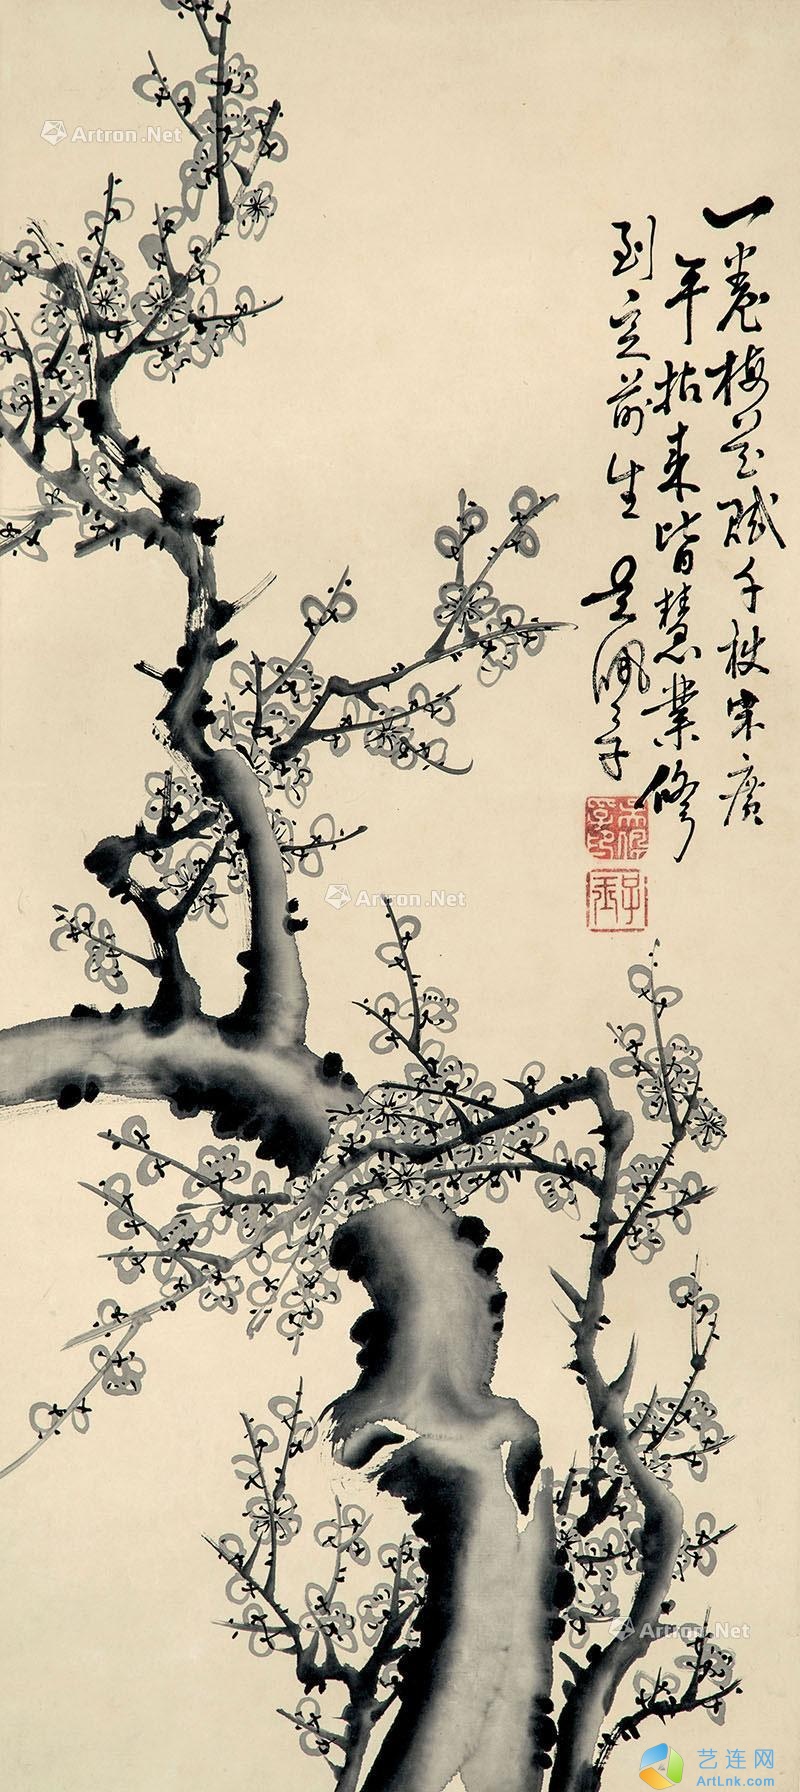 一卷梅花賦千秋宋廣
平拈來皆慧業修
到定前生 吳佩孚
吳佩孚印
子玉
Artron.Net
Artron.Net
Artron.Net
艺连网
ArtLnk.com